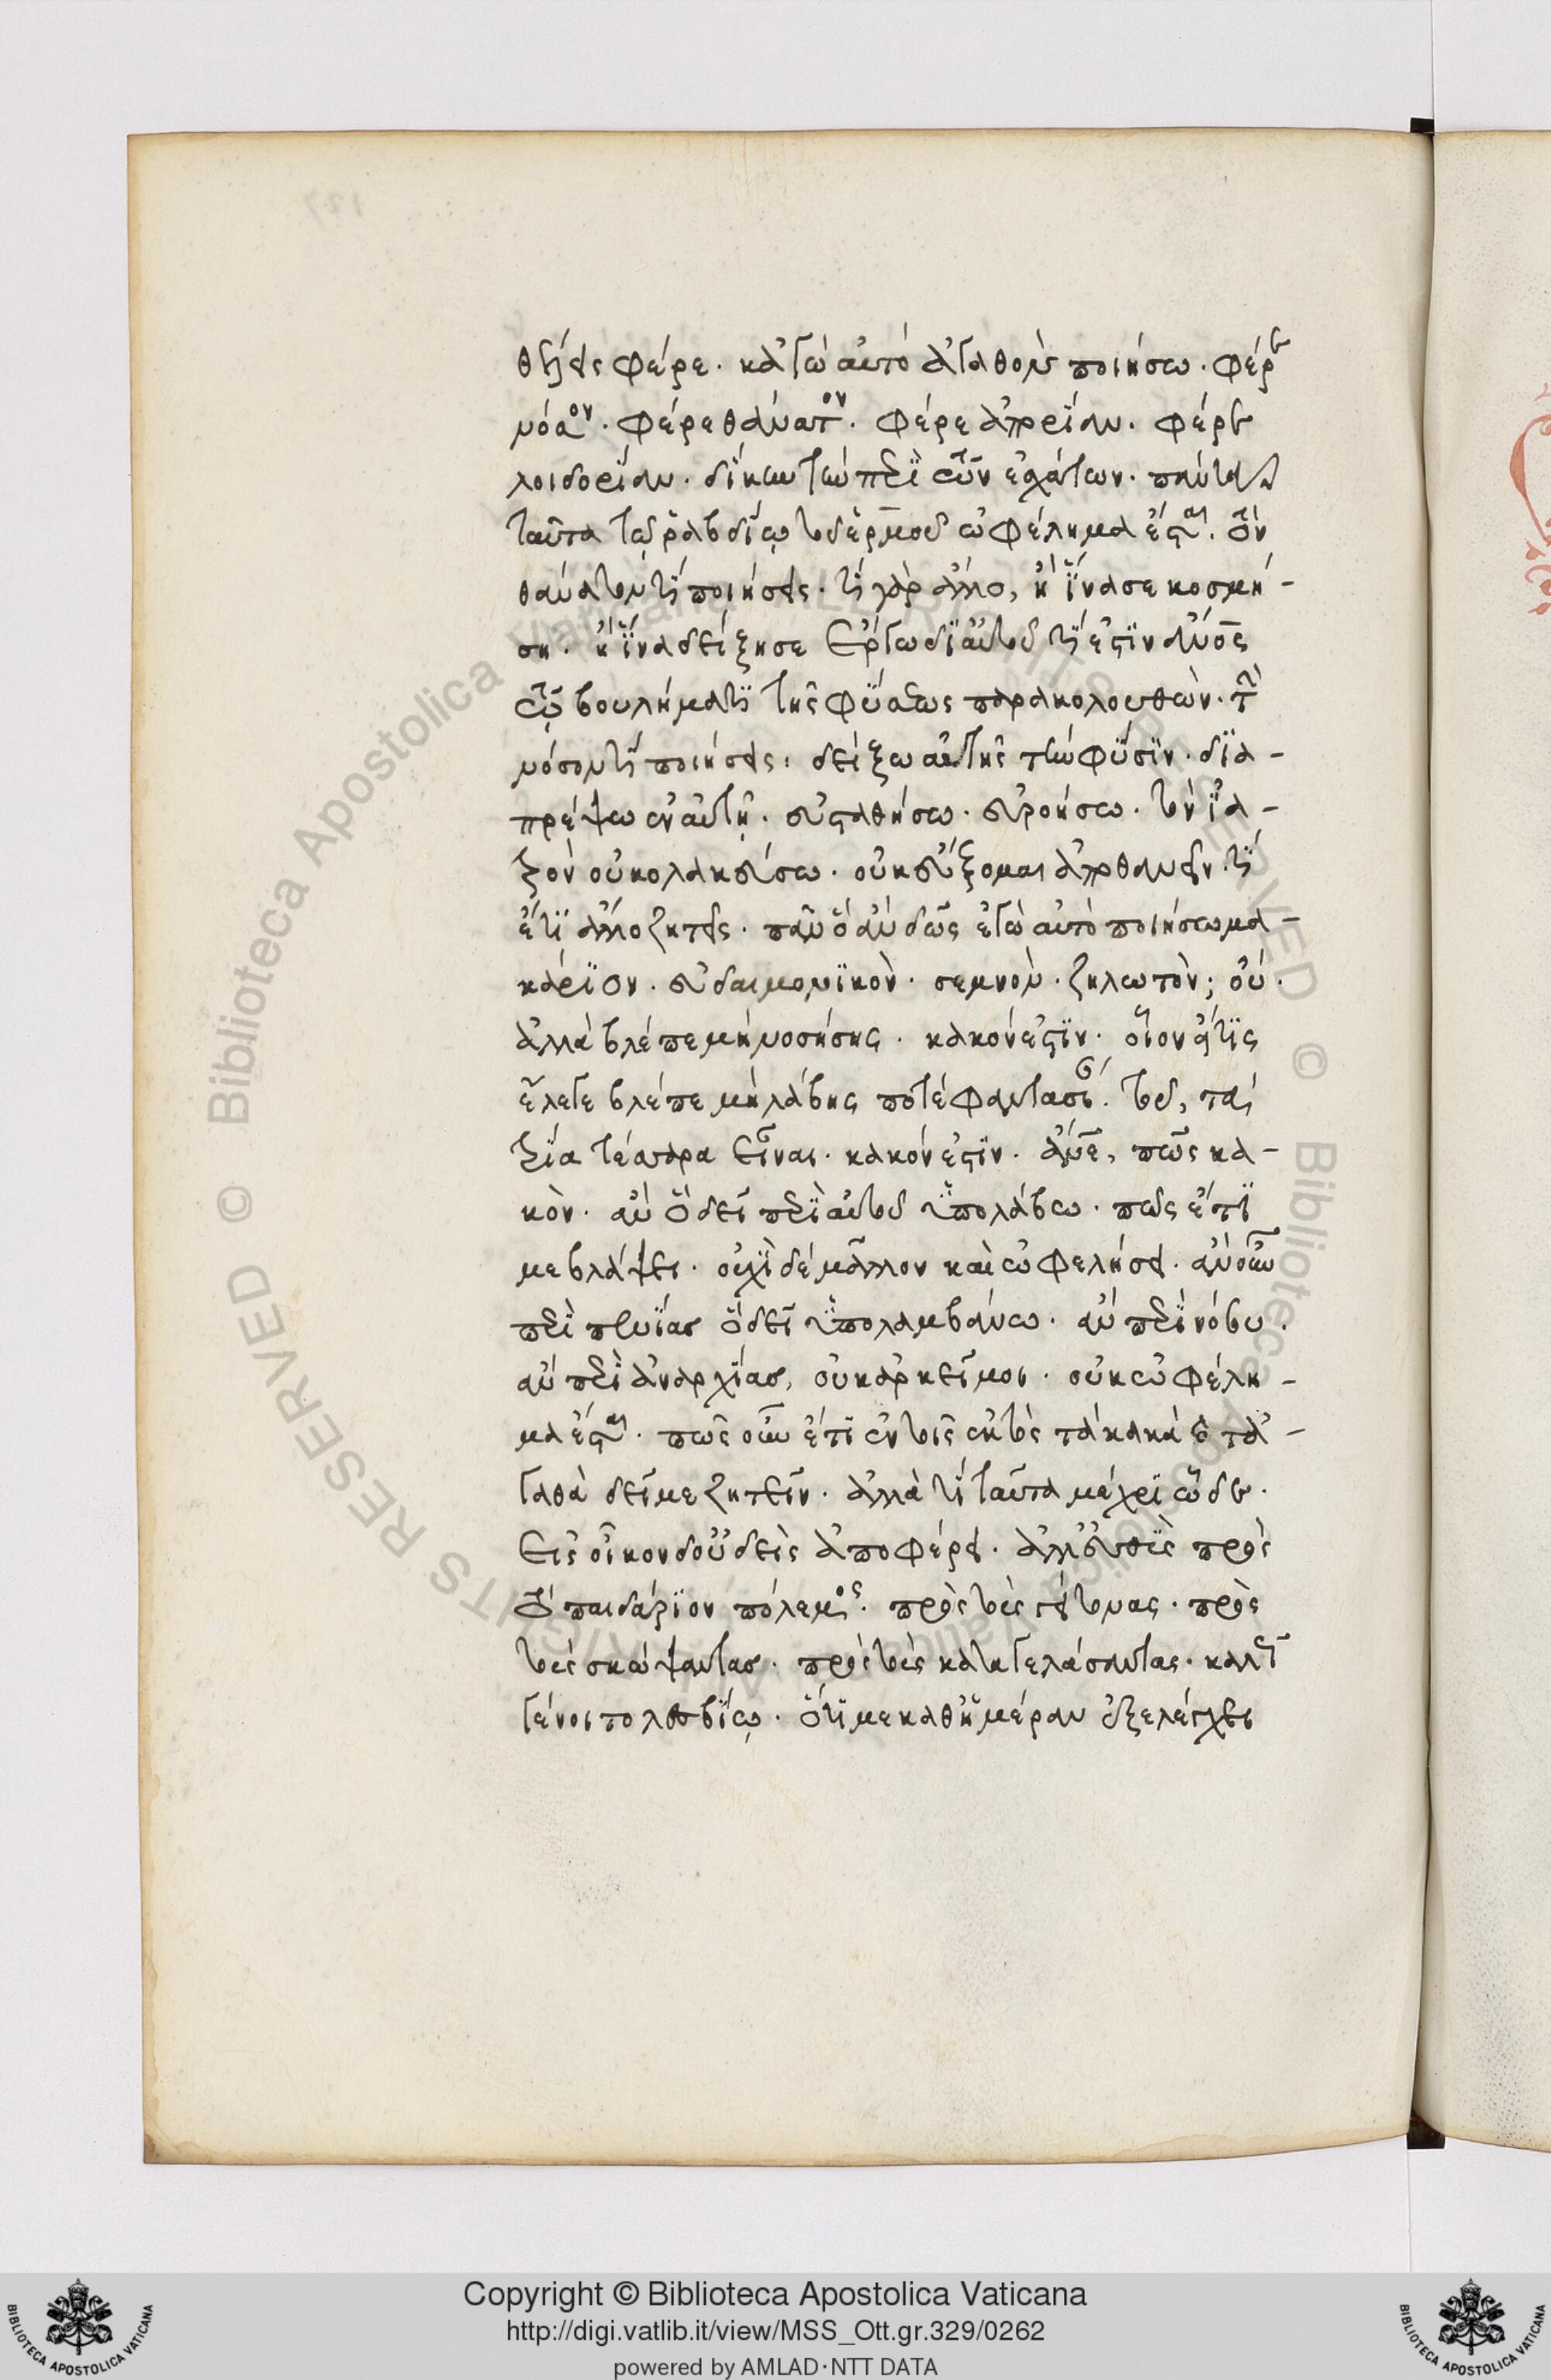 θέλεις φέρε. κἀγὼ αὐτὸ ἀγαθὸν ποιήσω. φέρε
νόσον. φέρε θάνατον. φέρε ἀπορίαν. φέρε
λοιδορίαν. δίκην τὴν περὶ τῶν ἐσχάτων. πάντα
ταῦτα τῷ ῥαβδίῳ τοῦ ἑρμοῦ ὠφέλημα ἔσται. τὸν
θάνατον τί ποιήσεις. τί γὰρ ἄλλο, ἢ ἵνα σε κοσμή-
ση. ἢ ἵνα δείξης ἔργω δι' αὐτοῦ τί ἐστιν ἄνθρωπος
τῷ βουλήματι τῆς φύσεως παρακολουθῶν. τὴν
νόσον τί ποιήσεις. δείξω αὐτῆς τὴν φύσιν. δια-
πρέψω ἐν αὐτῇ. εὐσταθήσω. εὐροήσω. τὸν ἰα-
τρὸν οὐ κολακεύσω. οὐκ εὔξομαι ἀποθανεῖν. τί
ἔτι ἄλλο ζητεῖς. πᾶν ὃ ἂν δῶς ἐγὼ αὐτὸ ποιήσω μα-
κάριον. εὐδαιμονικὸν. σεμνὸν. ζηλωτὸν; οὔ.
ἀλλὰ βλέπε μὴ νοσήσης. κακόν ἐστιν. οἷον εἴ τις
ἔλεγε βλέπε μὴ λάβης ποτὲ φαντασίαν. τοῦ, τὰ
τρία τέσσαρα εἶναι. κακόν ἐστιν. ἄνθρωπε, πῶς κα-
κὸν. ἂν ὃ δεῖ περὶ αὐτοῦ ὑπολάβω. πῶς ἔτι
με βλάψει. οὐχὶ δὲ μᾶλλον καὶ ὠφελήσει. ἂν οὖν
περὶ πενίας ὃ δεῖ ὑπολαμβάνω. ἂν περὶ νόσου.
ἂν περὶ ἀναρχίας, οὐκ ἀρκεῖ μοι. οὐκ ὠφέλη-
μα ἔσται. πῶς οὖν ἔτι ἐν τοῖς ἐκτὸς τὰ κακὰ καὶ τἀ-
γαθὰ δεῖ με ζητεῖν. ἀλλὰ τί ταῦτα μέχρι ὧδε.
εἰς οἶκον δ' οὐδεὶς ἀποφέρει. ἀλλ' εὐθὺς πρὸς
τὸ παιδάριον πόλεμος. πρὸς τοὺς γείτονας. πρὸς
τοὺς σκώψαντας. πρὸς τοὺς καταγελάσαντας. καλῶς
γένοιτο λεσβίῳ. ὅτι με καθ' ἡμέραν ἐξελέγχει
Copyright © Biblioteca Apostolica Vaticana
http://digi.vatlib.it/view/MSS_Ott.gr.329/0262
powered by AMLAD·NTT DATA